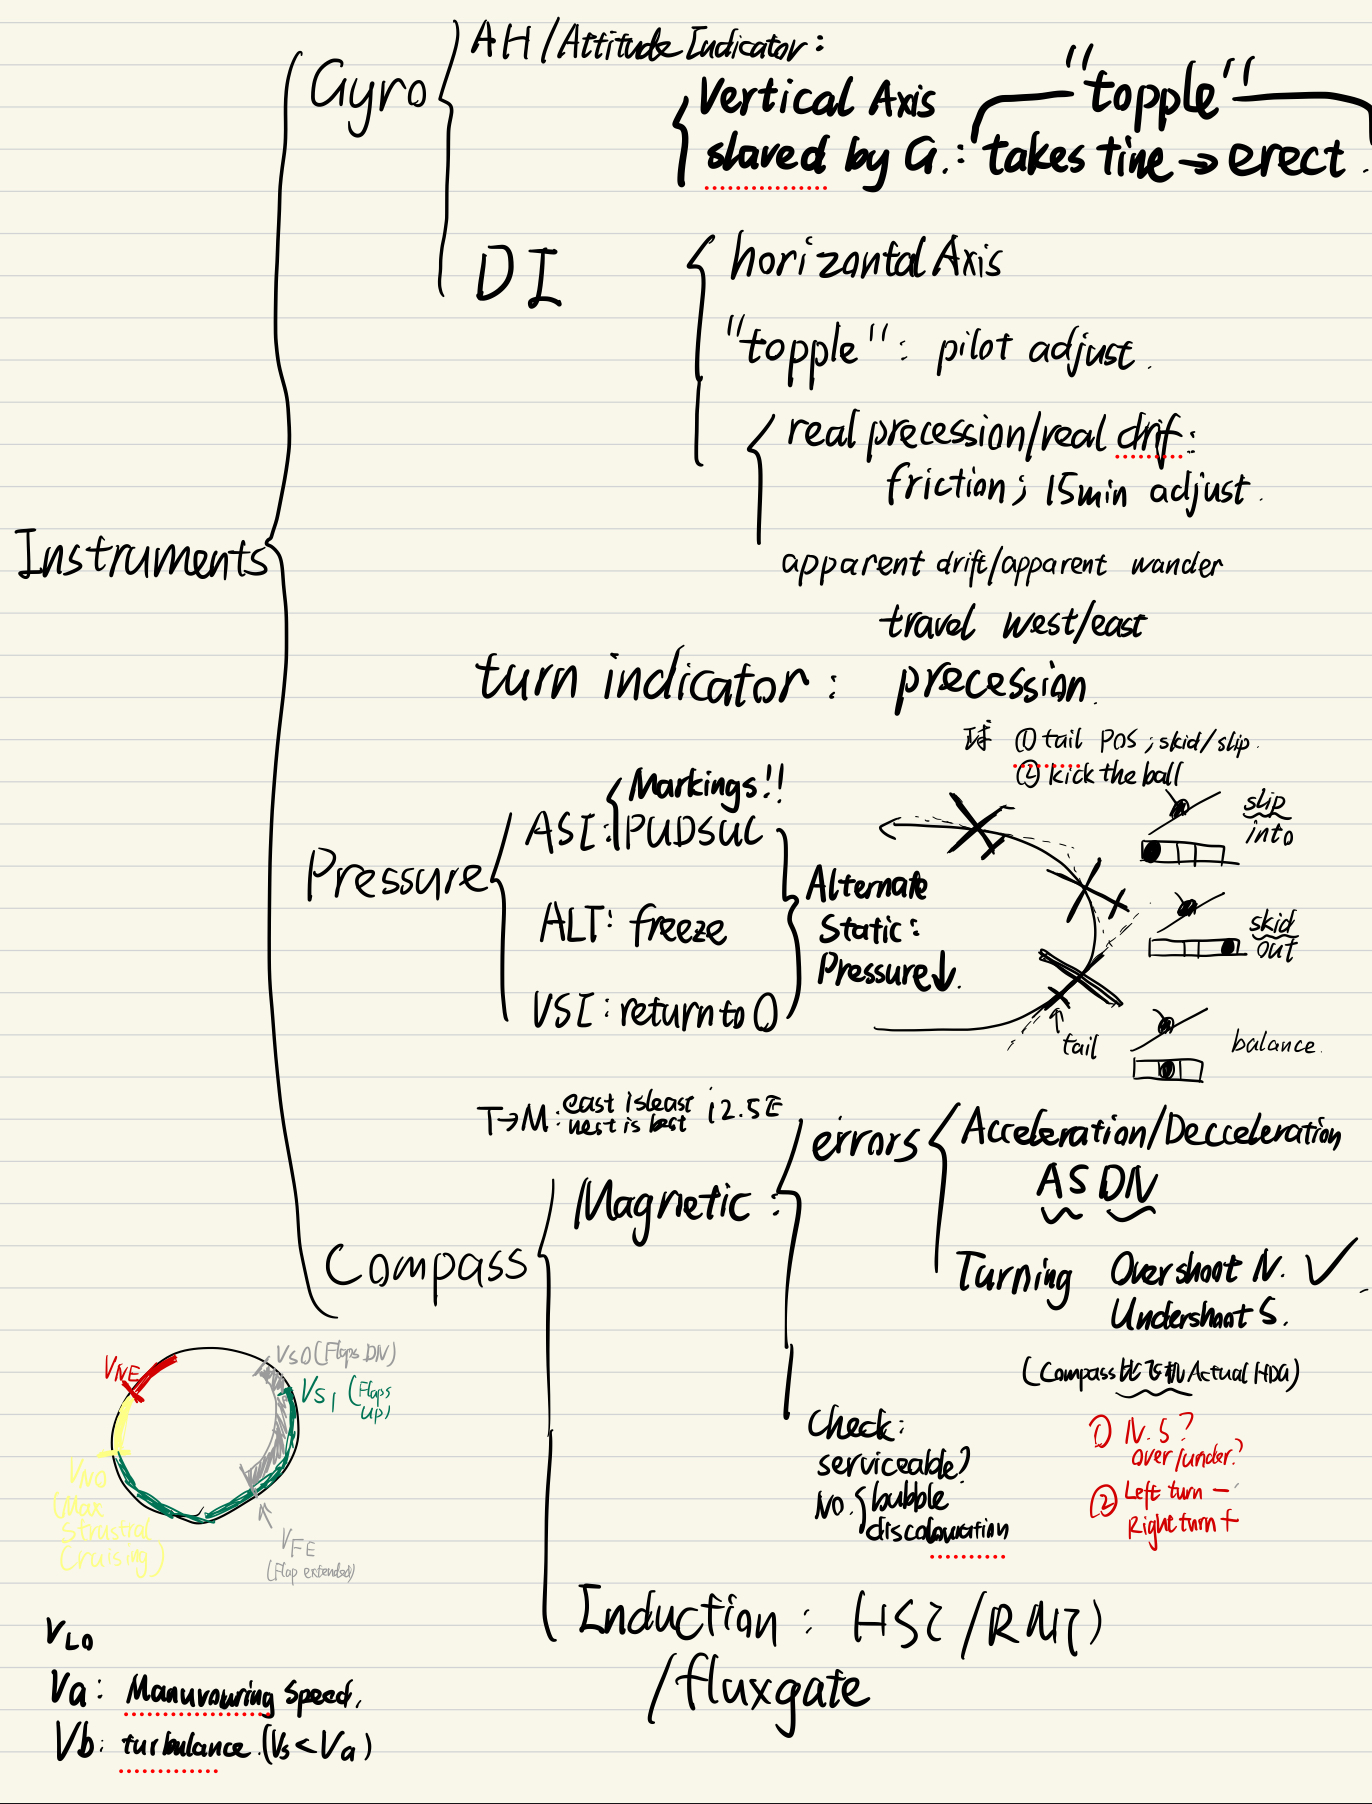 AH/Attitude Indicator:
Gyro
Vertical Axis
"topple"
slaved by G.: takes tine → erect.
DI
horizontal Axis
"topple": pilot adjust.
real precession/real drif:
friction; 15min adjust.
Instruments
apparent drift/apparent wander
travel west/east
turn indicator: precession.
球 ① tail pos; skid/slip.
② kick the ball
Pressure
Markings!!
ASI: PUDSUC
ALT: freeze
VSI: return to 0
Alternate
Static:
Pressure↓.
slip
into
skid
out
balance.
tail
T→M: east is least 12.5E
west is best
Compass
Magnetic:
errors
Acceleration/Decceleration
ASDN
Turning Overshoot N. ✓
Undershoot S.
(Compass Actual HDG)
① N.S?
over/under?
② Left turn −
Right turn +
Check:
serviceable?
NO. bubble
discolouration
Induction: HSI/RMI)
/fluxgate
VNE
VSO (Flaps DN)
VS1 (Flaps
up)
VNO
(Max
Strustral
Cruising)
VFE
(Flap extended)
VLO
Va: Manuvouring Speed.
Vb: turbulance. (Vs<Va)